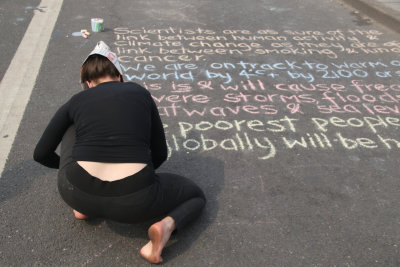 Scientists are as sure of the
link between human activity &
climate change as they are of the
link between smoking &
cancer.
We are on track to warm
world by 4c+ by 2100 or
This is & will cause
severe storms, floods,
heatwaves &
poorest people
globally will be